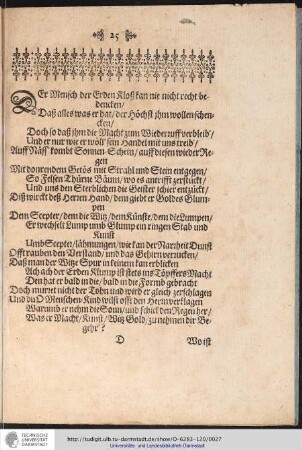 25
DEr Mensch der Erden Kloß kan nie nicht recht be-
dencken/
Daß alles was er hat/ der Höchst jhm wollen schen-
cken/
Doch so daß ihm die Macht zum Wiederruff verbleib/
Und er nur wie er wöll sein Handel mit uns treib/
Auff Näß kombt Sonnen-Schein/ auff diesen wieder Re-
gen
Mit donrendem Getöß mit Strahl und Stein entgegen/
So Felsen Thürne Bäum/ wo es antrifft zerstückt/
Und uns den Sterblichen die Geister schier entzückt/
Diß wirckt deß Herren Hand/ dem giebt er Goldes Glum-
pen
Dem Scepter/ dem die Witz/ dem Künste/ dem die Lumpen/
Er wechselt Lump umb Glump ein ringen Stab und
Kunst
Umb Scepter/ lähmungen/ wie kan der Narrheit Dunst
Offt rauben den Verstand/ und das Gehirn verrücken/
Daß man der Witze Spur in keinem kan erblicken
Ach ach der Erden Klump ist stets ins Töpffers Macht
Den hat er bald in die/ bald in die Formb gebracht
Doch murret nicht der Tohn und wird er gleich zerschlagen
Und du O Menschen Kind wilst offt den Herrn verklagen
Warumb er nehm die Sonn/ und schick den Regen her/
Was er Macht/ Kunst/ Witz Gold/ zu nehmen dir Be-
gehr?
D
Wo ist
http://tudigit.ulb.tu-darmstadt.de/show/O-6283-120/0027
Universitäts- und Landesbibliothek Darmstadt